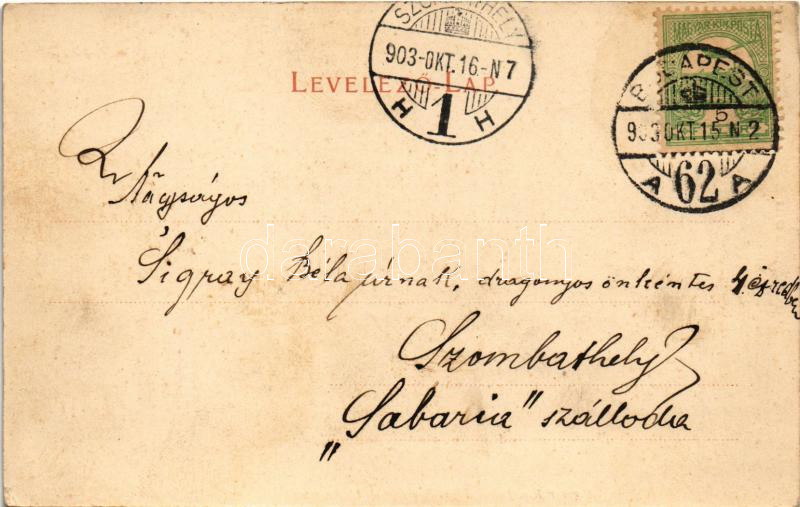 SZOMBATHELY
903-OKT.16-N7
H 1 H
LEVELEZŐ-LAP.
MAGYAR KIR. POSTA
5
BUDAPEST
903 OKT.15-N-2
A 62 A
Nagyságos
Sigray Béla úrnak, dragonyos önkéntes 4
Szombathely
„Sabaria” szálloda
darabanth